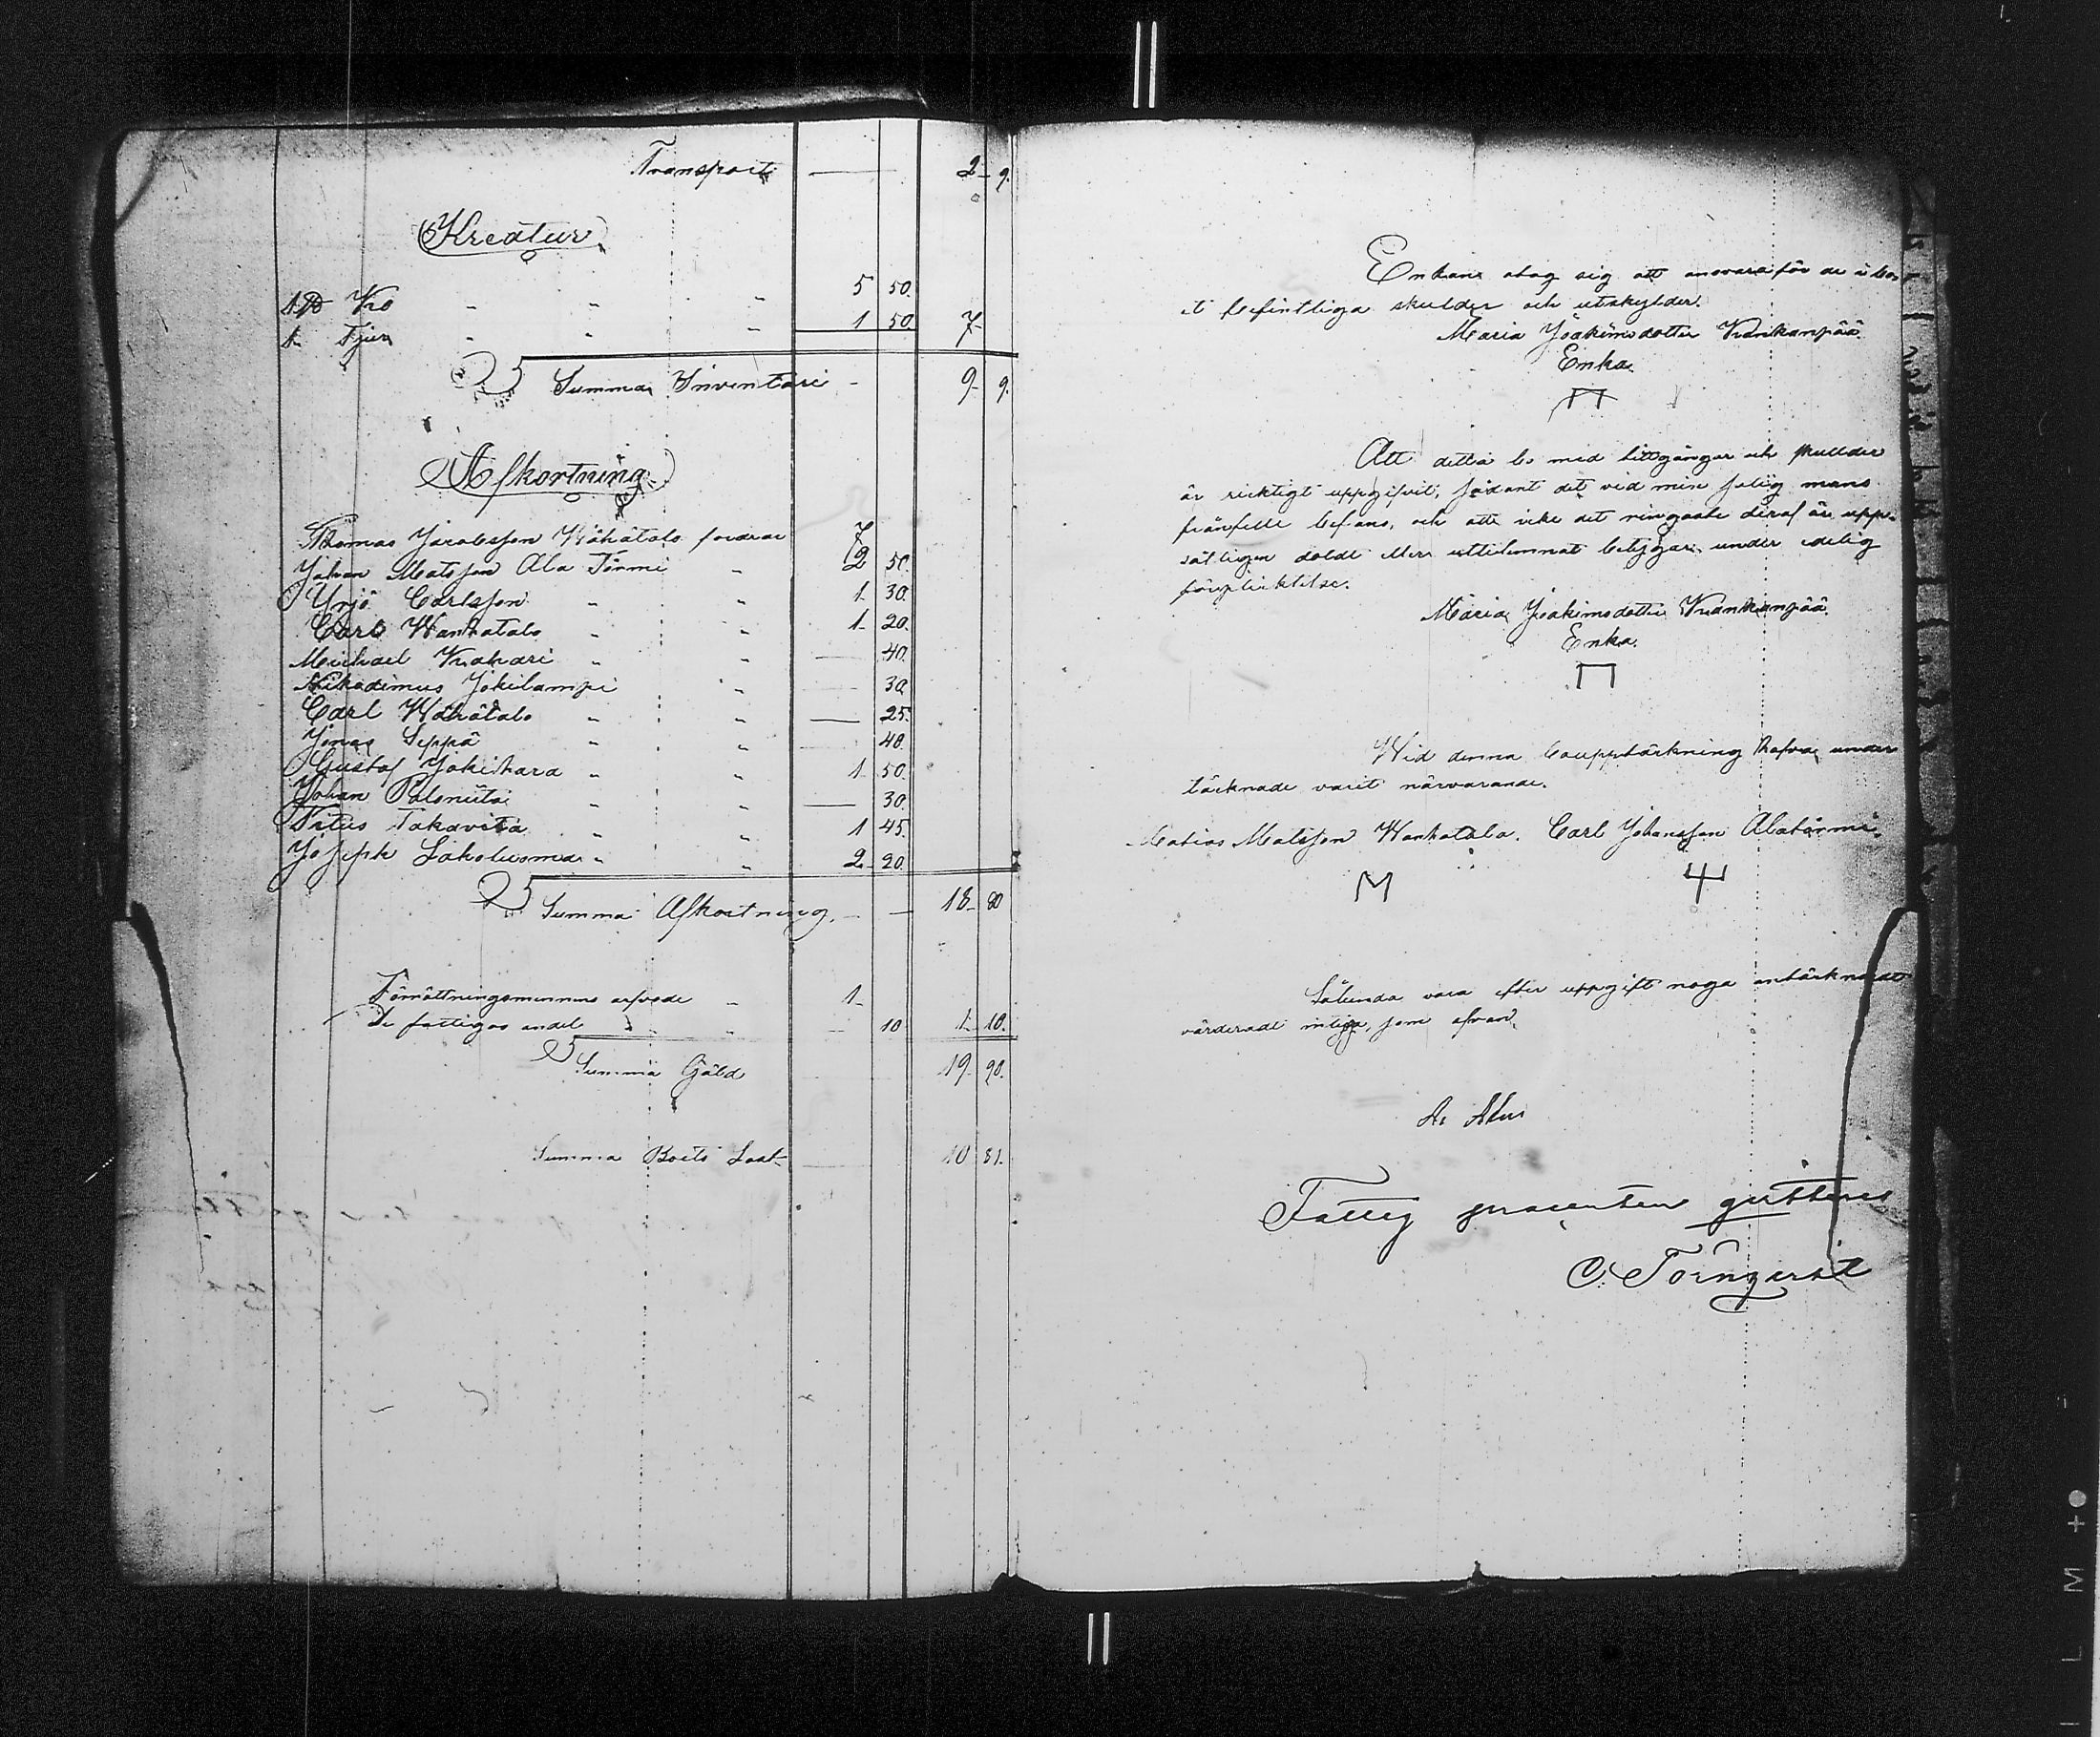 Transport — 2 9.
Kreatur
1 Ko " " " 5 50.
1 Tjur " " " 1 50 7-
Summa Inventari - 9- 9.
Afkortning
Thomas Jacobsson Wähätalo fordrar 7
Johan Matsson Ala Törmi " 2 50.
Yrjö Carlsson " " 1- 30.
Carl Wanhatalo " " 1- 20.
Michael Knahari " " — 40.
Nikodimus Jokilampi " — 30
Carl Wähätalo " " — 25.
Jonas Seppä " " — 40.
Gustaf Jokihara " " 1- 50.
Johan Paloniita " " — 30.
Titus Takavita " " 1 45.
Joseph Lakoluoma " " 2- 20.
Summa Afkortning. - — 18- 80
Förrättningsmennens arfvode - 1-
De fattigas andel " " — 10 1- 10.
Summa Gäld 19- 90.
Summa Boets Last- 10 81.
Enkan åtog sig att ansvara för de i bo-
et befintliga skulder och utskylder.
Maria Joakimsdotter Krankanpää.
Enka.
Att detta bo med tillgångar och skullder
är ricktigt uppgifvit, sådant det vid min salig mans
frånfelle befans, och att icke det ringaste deraf är upp-
såtligen doldt eller uttelemnat betygar under edelig
förplicktelse.
Maria Joakimsdotter Krankanpää.
Enka.
Wid denna bouppteckning hafva under
täcknade varit närvarande.
Matias Matsson Wanhatalo. Carl Johansson Alatörmä.
M
Sålunda vara efter uppgift noga antäcknadt
värderadt intyga, som ofvan.
Fattig procenten gvitteras
C. Törnqvist